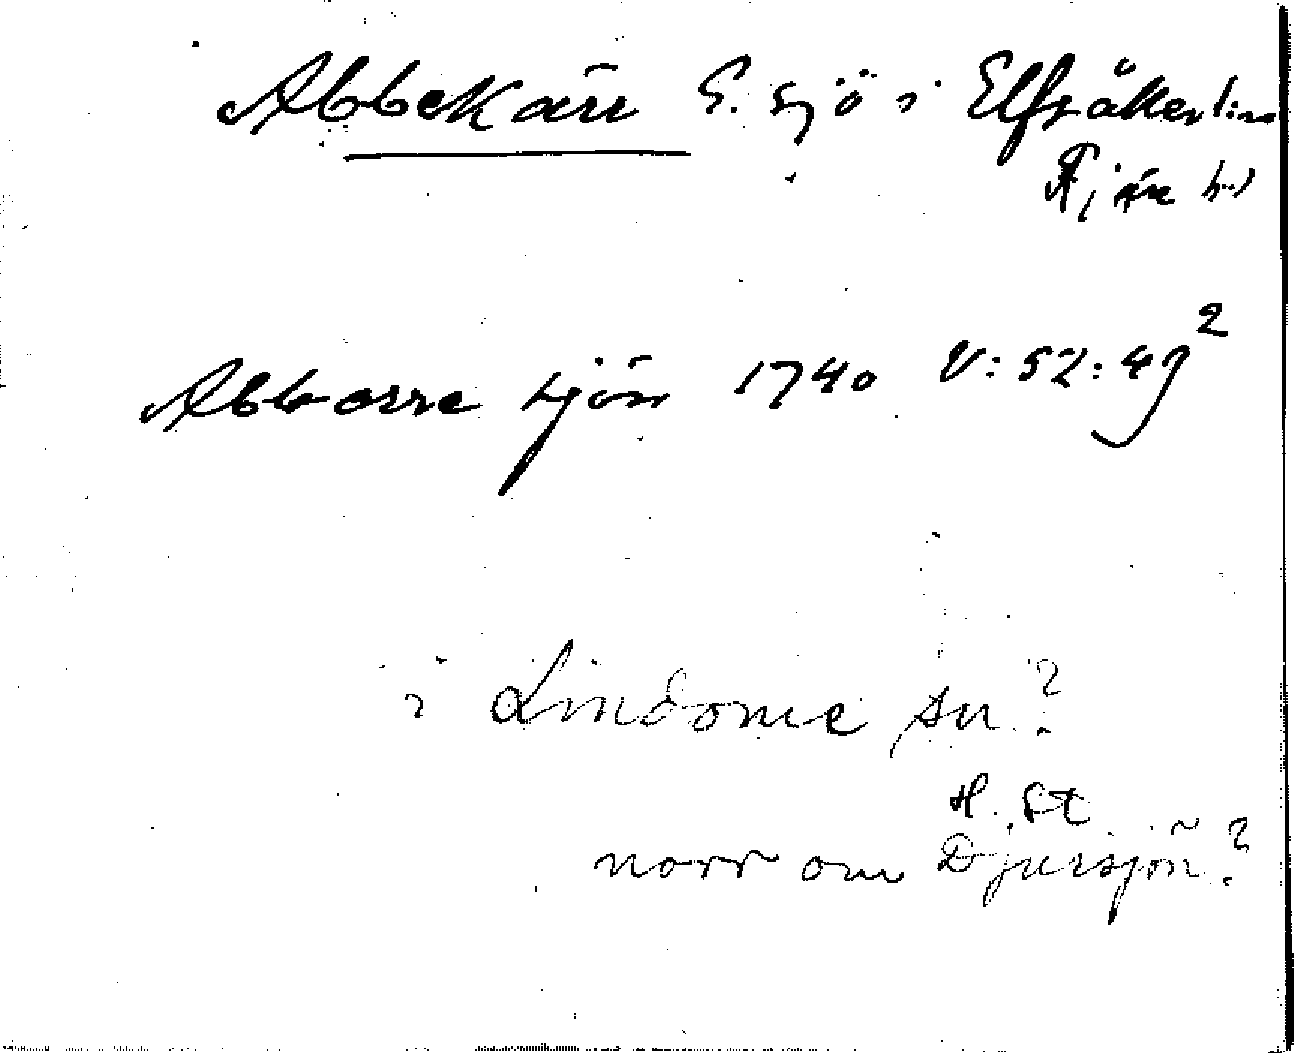 Abbekärr S. sjö i Elfsåker
Fjäre hd
Abborre tjön 1740 V:52:49²
i Lindome sn?
H. St
norr om Djursjön?